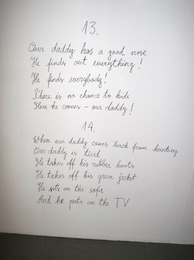 13.
Our daddy has a good nose
He finds out everything!
He finds everybody!
There is no chance to hide
Here he comes - our daddy!
14.
When our daddy comes back from hunting
Our daddy is tired
He takes off his rubber boots
He takes off his green jacket
He sits on the sofa
And he puts on the TV